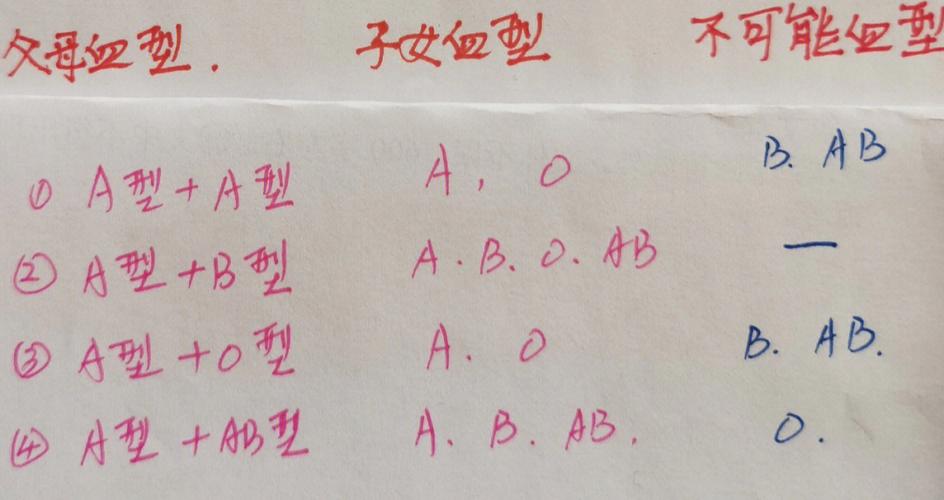 父母血型. 子女血型 不可能血型
① A型+A型 A, O B. AB
② A型+B型 A. B. O. AB —
③ A型+O型 A. O B. AB.
④ A型+AB型 A. B. AB. O.